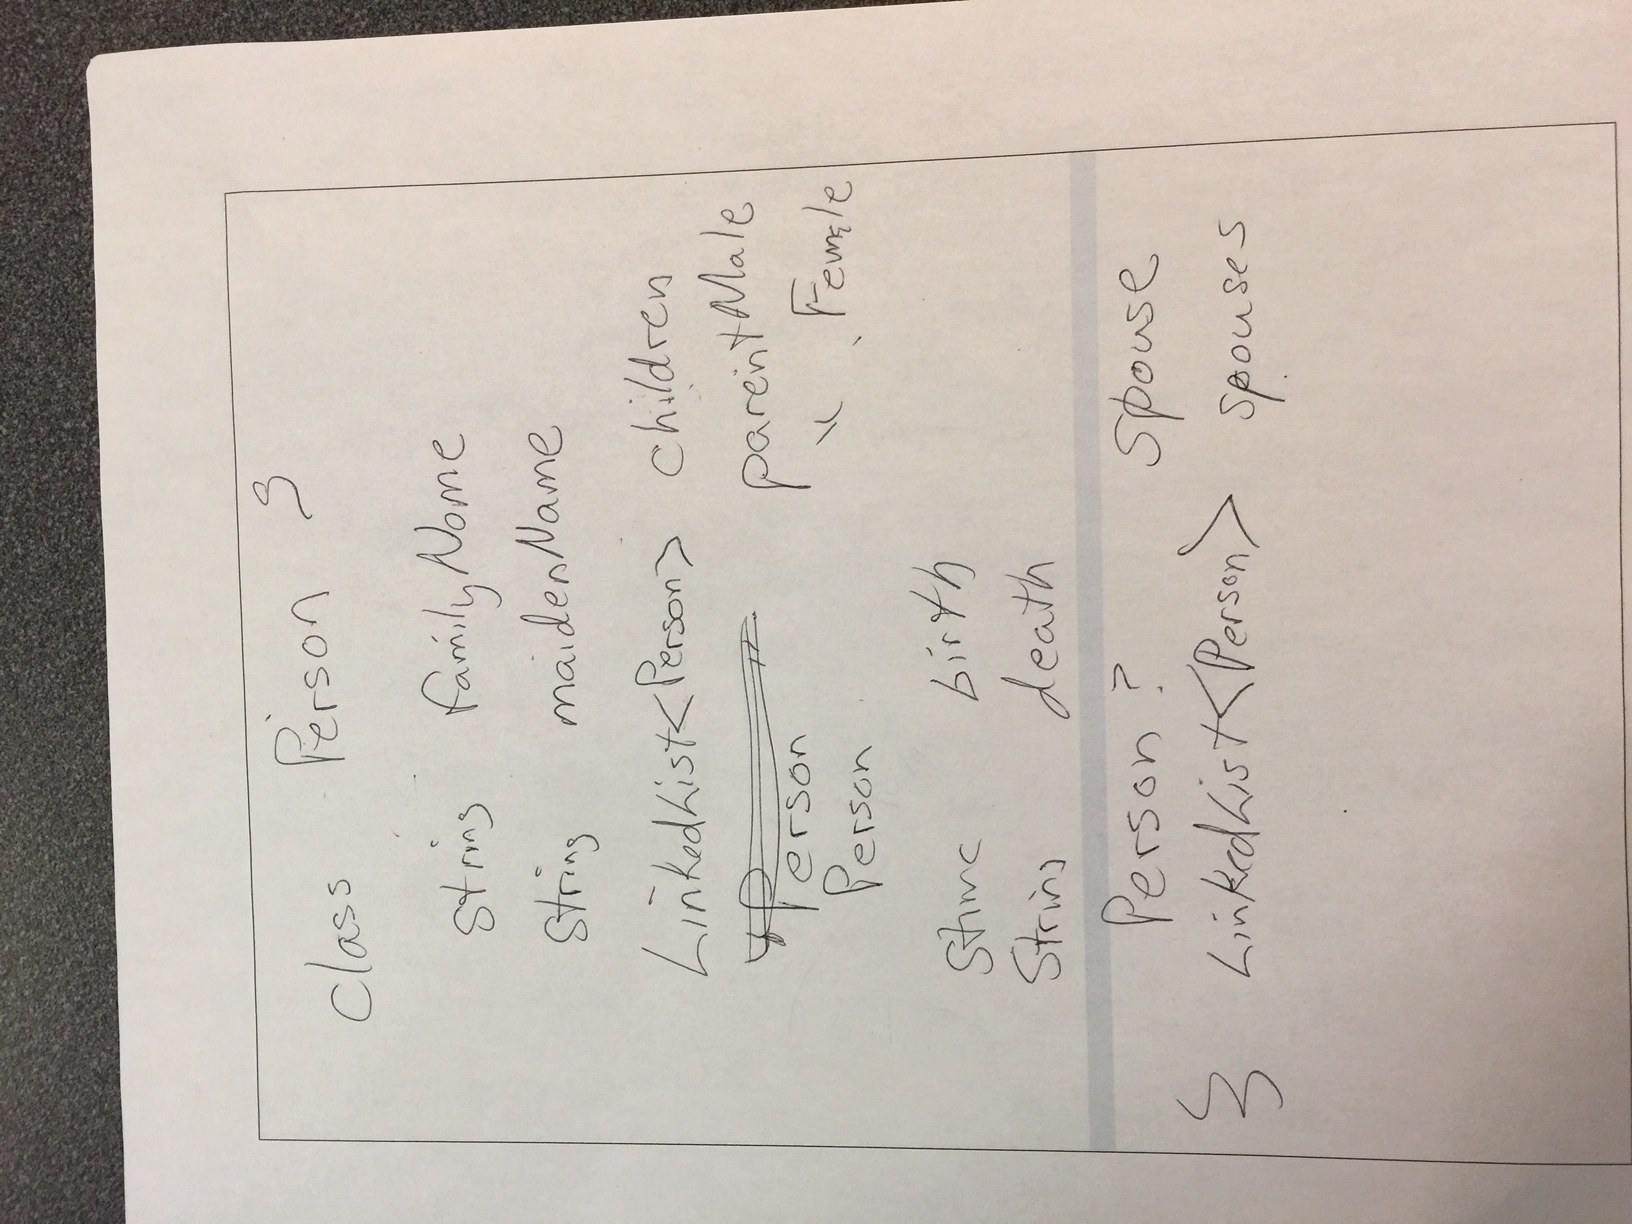 class Person {
String familyName
String maidenName
LinkedList<Person> children
Person parentMale
Person " Female
String birth
String death
Person? spouse
} LinkedList<Person> spouses